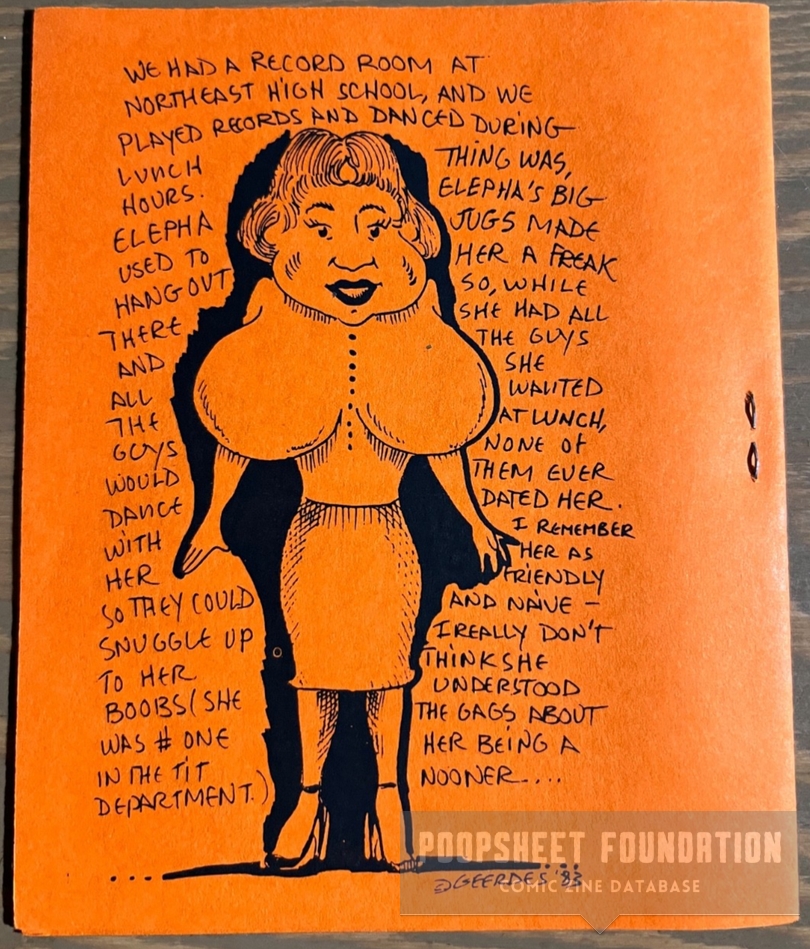 WE HAD A RECORD ROOM AT
NORTHEAST HIGH SCHOOL, AND WE
PLAYED RECORDS AND DANCED DURING
LUNCH
HOURS.
ELEPHA
USED TO
HANG OUT
THERE
AND
ALL
THE
GUYS
WOULD
DANCE
WITH
HER
SO THEY COULD
SNUGGLE UP
TO HER
BOOBS (SHE
WAS # ONE
IN THE TIT
DEPARTMENT.)
THING WAS,
ELEPHA'S BIG
JUGS MADE
HER A FREAK
SO, WHILE
SHE HAD ALL
THE GUYS
SHE
WANTED
AT LUNCH,
NONE OF
THEM EVER
DATED HER.
I REMEMBER
HER AS
FRIENDLY
AND NAIVE –
I REALLY DON'T
THINK SHE
UNDERSTOOD
THE GAGS ABOUT
HER BEING A
NOONER....
©GEERDES '83
POOPSHEET FOUNDATION
COMIC ZINE DATABASE